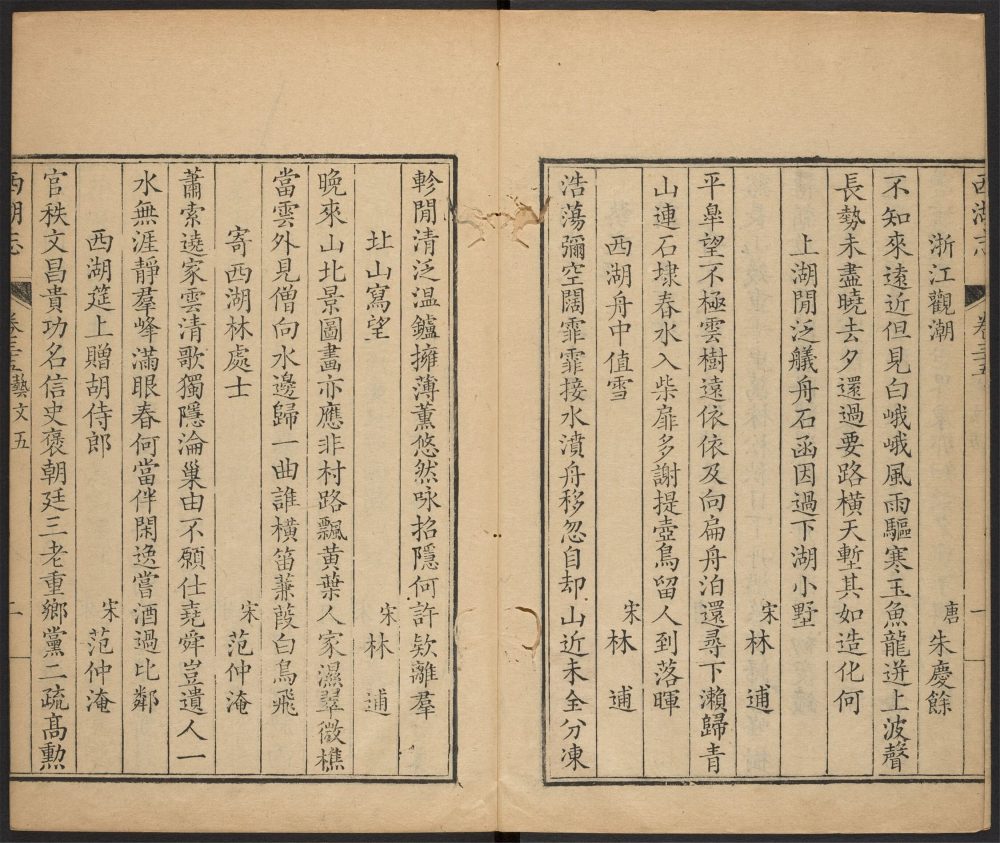 西湖志 卷三十五 一
浙江觀潮 唐 朱慶餘
不知來遠近但見白峨峨風雨驅寒玉魚龍迸上波聲
長勢未盡曉去夕還過要路橫天塹其如造化何
上湖閒泛艤舟石函因過下湖小墅 宋 林逋
平皐望不極雲樹遠依依及向扁舟泊還尋下瀨歸青
山連石埭春水入柴扉多謝提壺鳥留人到落暉
西湖舟中值雪 宋 林逋
浩蕩彌空闊霏霏接水濆舟移忽自却山近未全分凍
軫閒清泛温鑪擁薄薰悠然咏招隱何許欵離羣
北山寫望 宋 林逋
晚來山北景圖畵亦應非村路飄黃葉人家濕翠微樵
當雲外見僧向水邊歸一曲誰橫笛蒹葭白鳥飛
寄西湖林處士 宋 范仲淹
蕭索遶家雲清歌獨隱淪巢由不願仕堯舜豈遺人一
水無涯靜羣峰滿眼春何當伴閑逸嘗酒過比鄰
西湖筵上贈胡侍郎 宋 范仲淹
官秩文昌貴功名信史褒朝廷三老重鄉黨二疏高勳
西湖志 卷三十五 藝文五 二